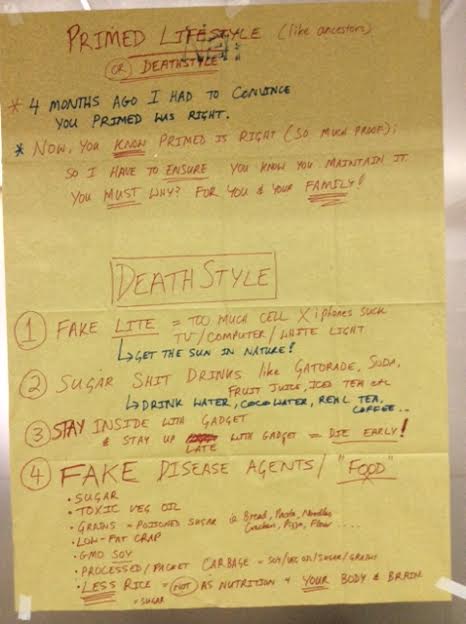 PRIMED LIFESTYLE (like ancestors)
OR DEATHSTYLE
* 4 MONTHS AGO I HAD TO CONVINCE
YOU PRIMED WAS RIGHT.
* NOW, YOU KNOW PRIMED IS RIGHT (SO MUCH PROOF);
SO I HAVE TO ENSURE YOU KNOW YOU MAINTAIN IT
YOU MUST WHY? FOR YOU & YOUR FAMILY!
DEATHSTYLE
1 FAKE LITE = TOO MUCH CELL X iphones suck
TV/COMPUTER/WHITE LIGHT
↳ GET THE SUN IN NATURE!
2 SUGAR SHIT DRINKS like GATORADE, SODA,
FRUIT JUICE, ICED TEA etc
↳ DRINK WATER, COCOWATER, REAL TEA,
COFFEE..
3 STAY INSIDE WITH GADGET
& STAY UP WITH GADGET = DIE EARLY!
LATE
4 FAKE DISEASE AGENTS/"FOOD"
• SUGAR
• TOXIC VEG OIL
• GRAINS = POISONED SUGAR Bread, Pasta, Noodles
Crackers, Pizza, Flour ....
• LOW-FAT CRAP
• GMO SOY
• PROCESSED/PACKET GARBAGE = SOY/VEG OIL/SUGAR/GRAINS
• LESS RICE = NOT AS NUTRITION 4 YOUR BODY & BRAIN
= SUGAR